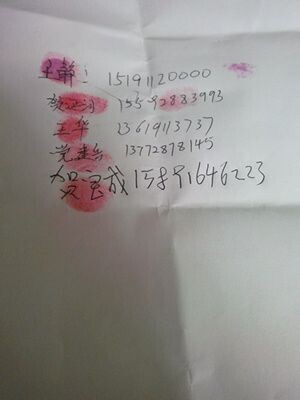 王静 15191120000
15592883993
王华 13619113737
党建兵 13772878145
贺宝成 15891646223